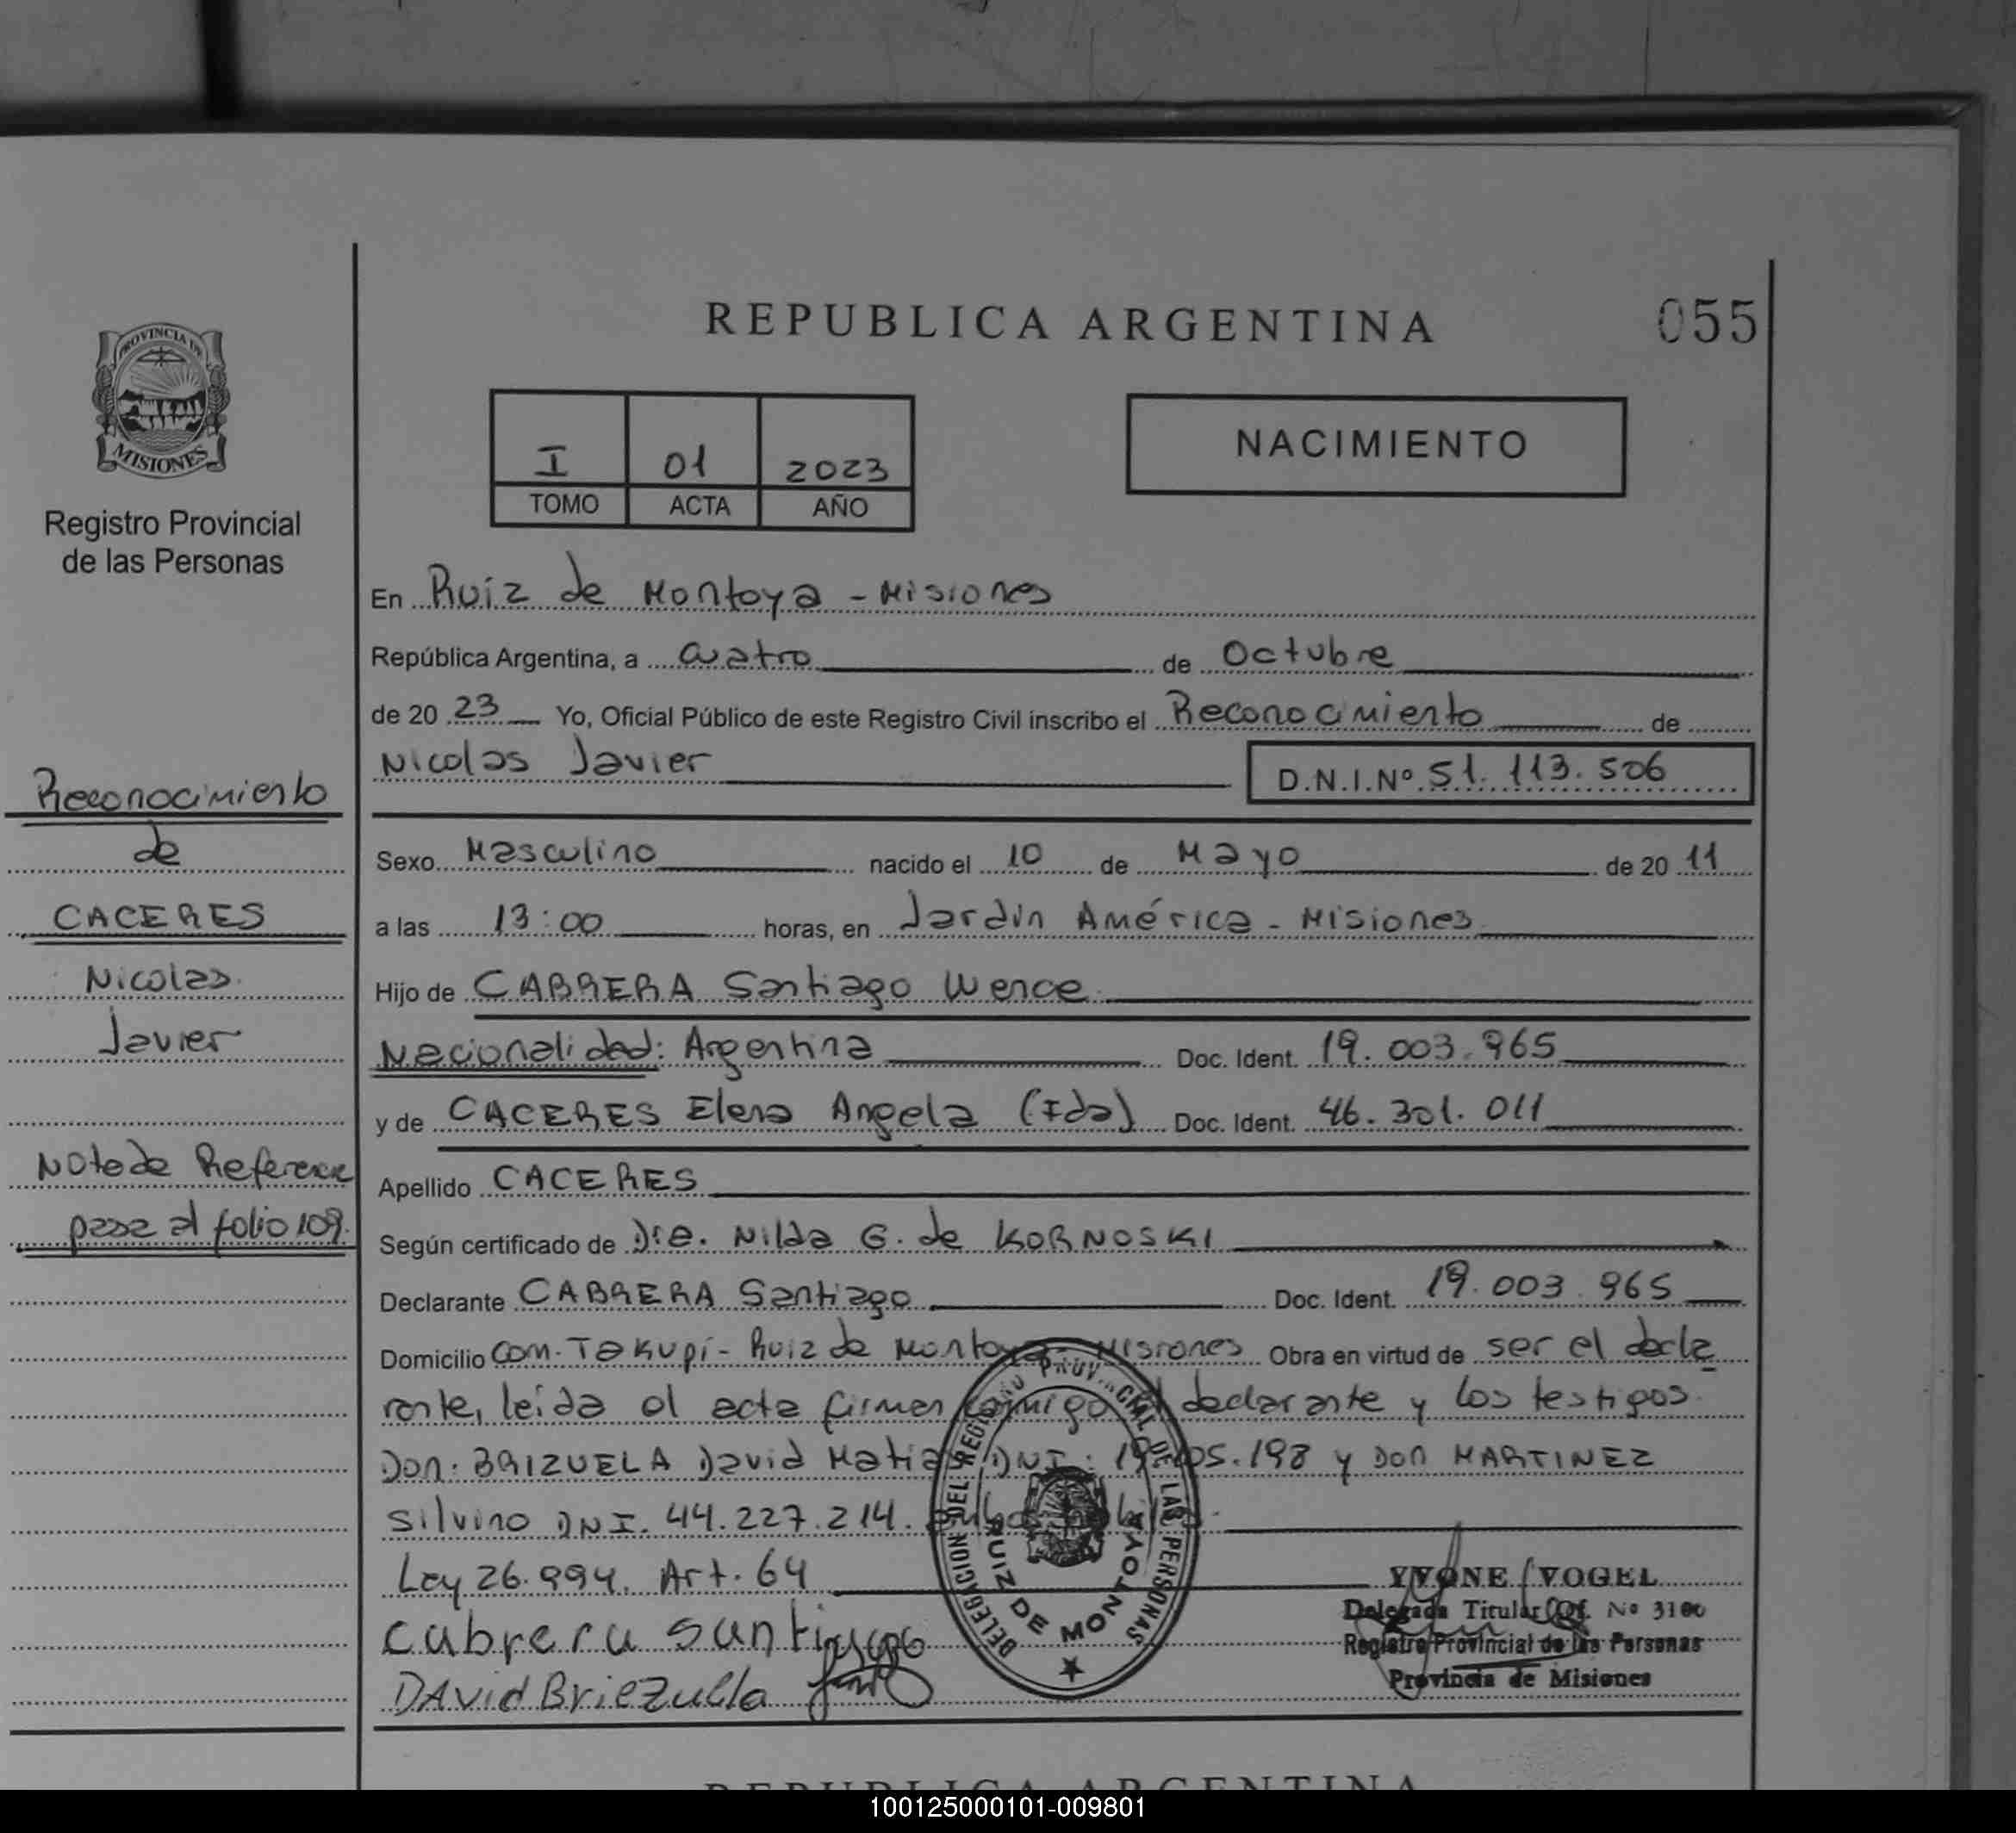 REPUBLICA ARGENTINA
055
PROVINCIA DE
MISIONES
Registro Provincial
de las Personas
I 01 2023
TOMO ACTA AÑO
NACIMIENTO
En Ruiz de Montoya - Misiones
República Argentina, a cuatro de Octubre
de 20 23 Yo, Oficial Público de este Registro Civil inscribo el Reconocimiento de
Nicolas Javier D.N.I.Nº 51.113.506
Sexo Masculino nacido el 10 de Mayo de 20 11
a las 13:00 horas, en Jardin América - Misiones
Hijo de CABRERA Santiago Werce
Nacionalidad: Argentina Doc. Ident. 19.003.965
y de CACERES Elena Angela (Ida) Doc. Ident. 46.301.011
Apellido CACERES
Según certificado de Dra. Nilda G. de KORNOSKI
Declarante CABRERA Santiago Doc. Ident. 19.003.965
Domicilio Com. Takupi - Ruiz de Montoya - Misiones Obra en virtud de ser el decla
rante, leida el acta firman conmigo el declarante y los testigos
Don. BRIZUELA David Matias DNI: 05.198 y Don MARTINEZ
Silvino DNI. 44.227.214.
Ley 26.994. Art. 64
cabrera santiago
DAvid BrieZuella
Reconocimiento
de
CACERES
Nicolas
Javier
Nota de Referencia
pasa al folio 109.
DELEGACION DEL REGISTRO PROVINCIAL DE LAS PERSONAS
RUIZ DE MONTOYA
YVONE VOGEL
Delegada Titular Of. Nº 3100
Registro Provincial de las Personas
Provincia de Misiones
REPUBLICA ARGENTINA
100125000101-009801